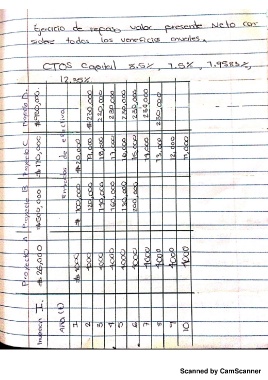 Ejercicio de repaso, valor presente Neto con
sidere todos los veneficios anuales.
CTOS Capital 8.5%, 7.5%, 7.9383%,
12.35%
Proyecto A Proyecto B Proyecto C Proyecto D.
Inversión I. $26,000 $500,000 $170,000 $950,000.
AÑO (t) Entradas de efectivo
1 $4000 $100,000 $20,000 $230,000
2 4000 120,000 19,000 230,000
3 4000 18,000 230,000
4 4000 160,000 17,000 230,000
5 4000 16,000 230,000
6 4000 200,000 15,000 230,000
7 4000 14,000 230,000
8 4000 13,000 230,000
9 4000 12,000
10 4000 11,000
Scanned by CamScanner